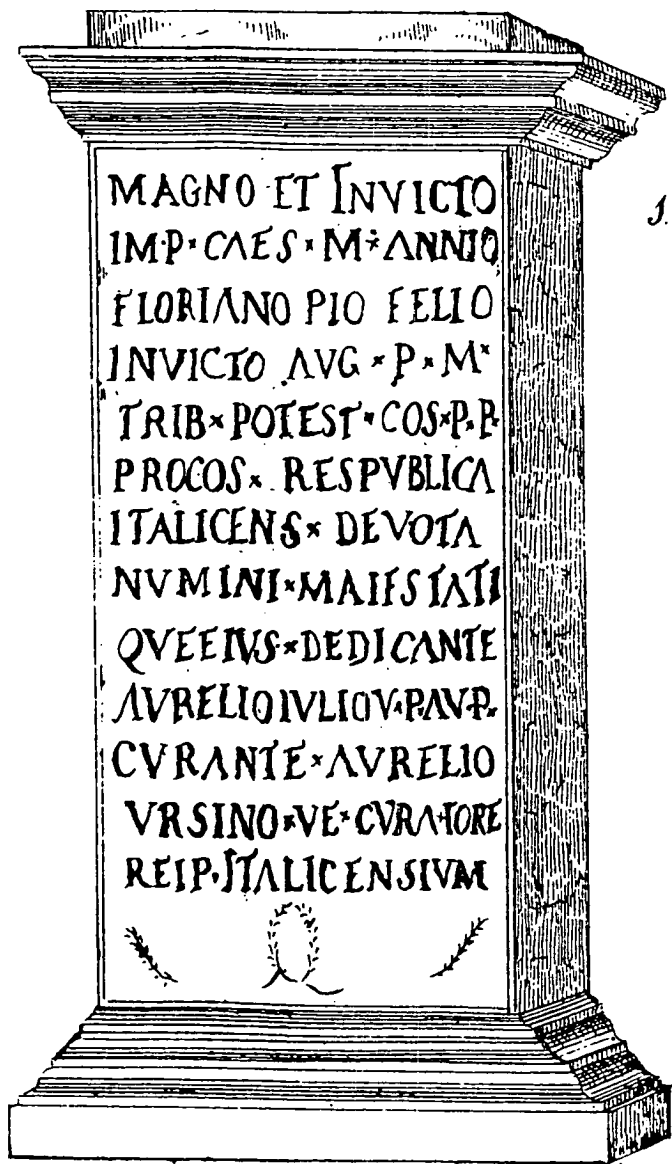 MAGNO ET INVICTO
IM·P × CAES × M × ANNIO
FLORIANO PIO FELIO
INVICTO AVG × P × M ×
TRIB × POTEST × COS × P × P ·
PROCOS × RESPVBLICA
ITALICENS × DEVOTA
NVMINI × MAIESTATI
QVEEIVS × DEDICANTE
AVRELIOIVLIOV × P·AV·P·
CVRANTE × AVRELIO
VRSINO × VE × CVRATORE
REIP · ITALICENSIVM
1.